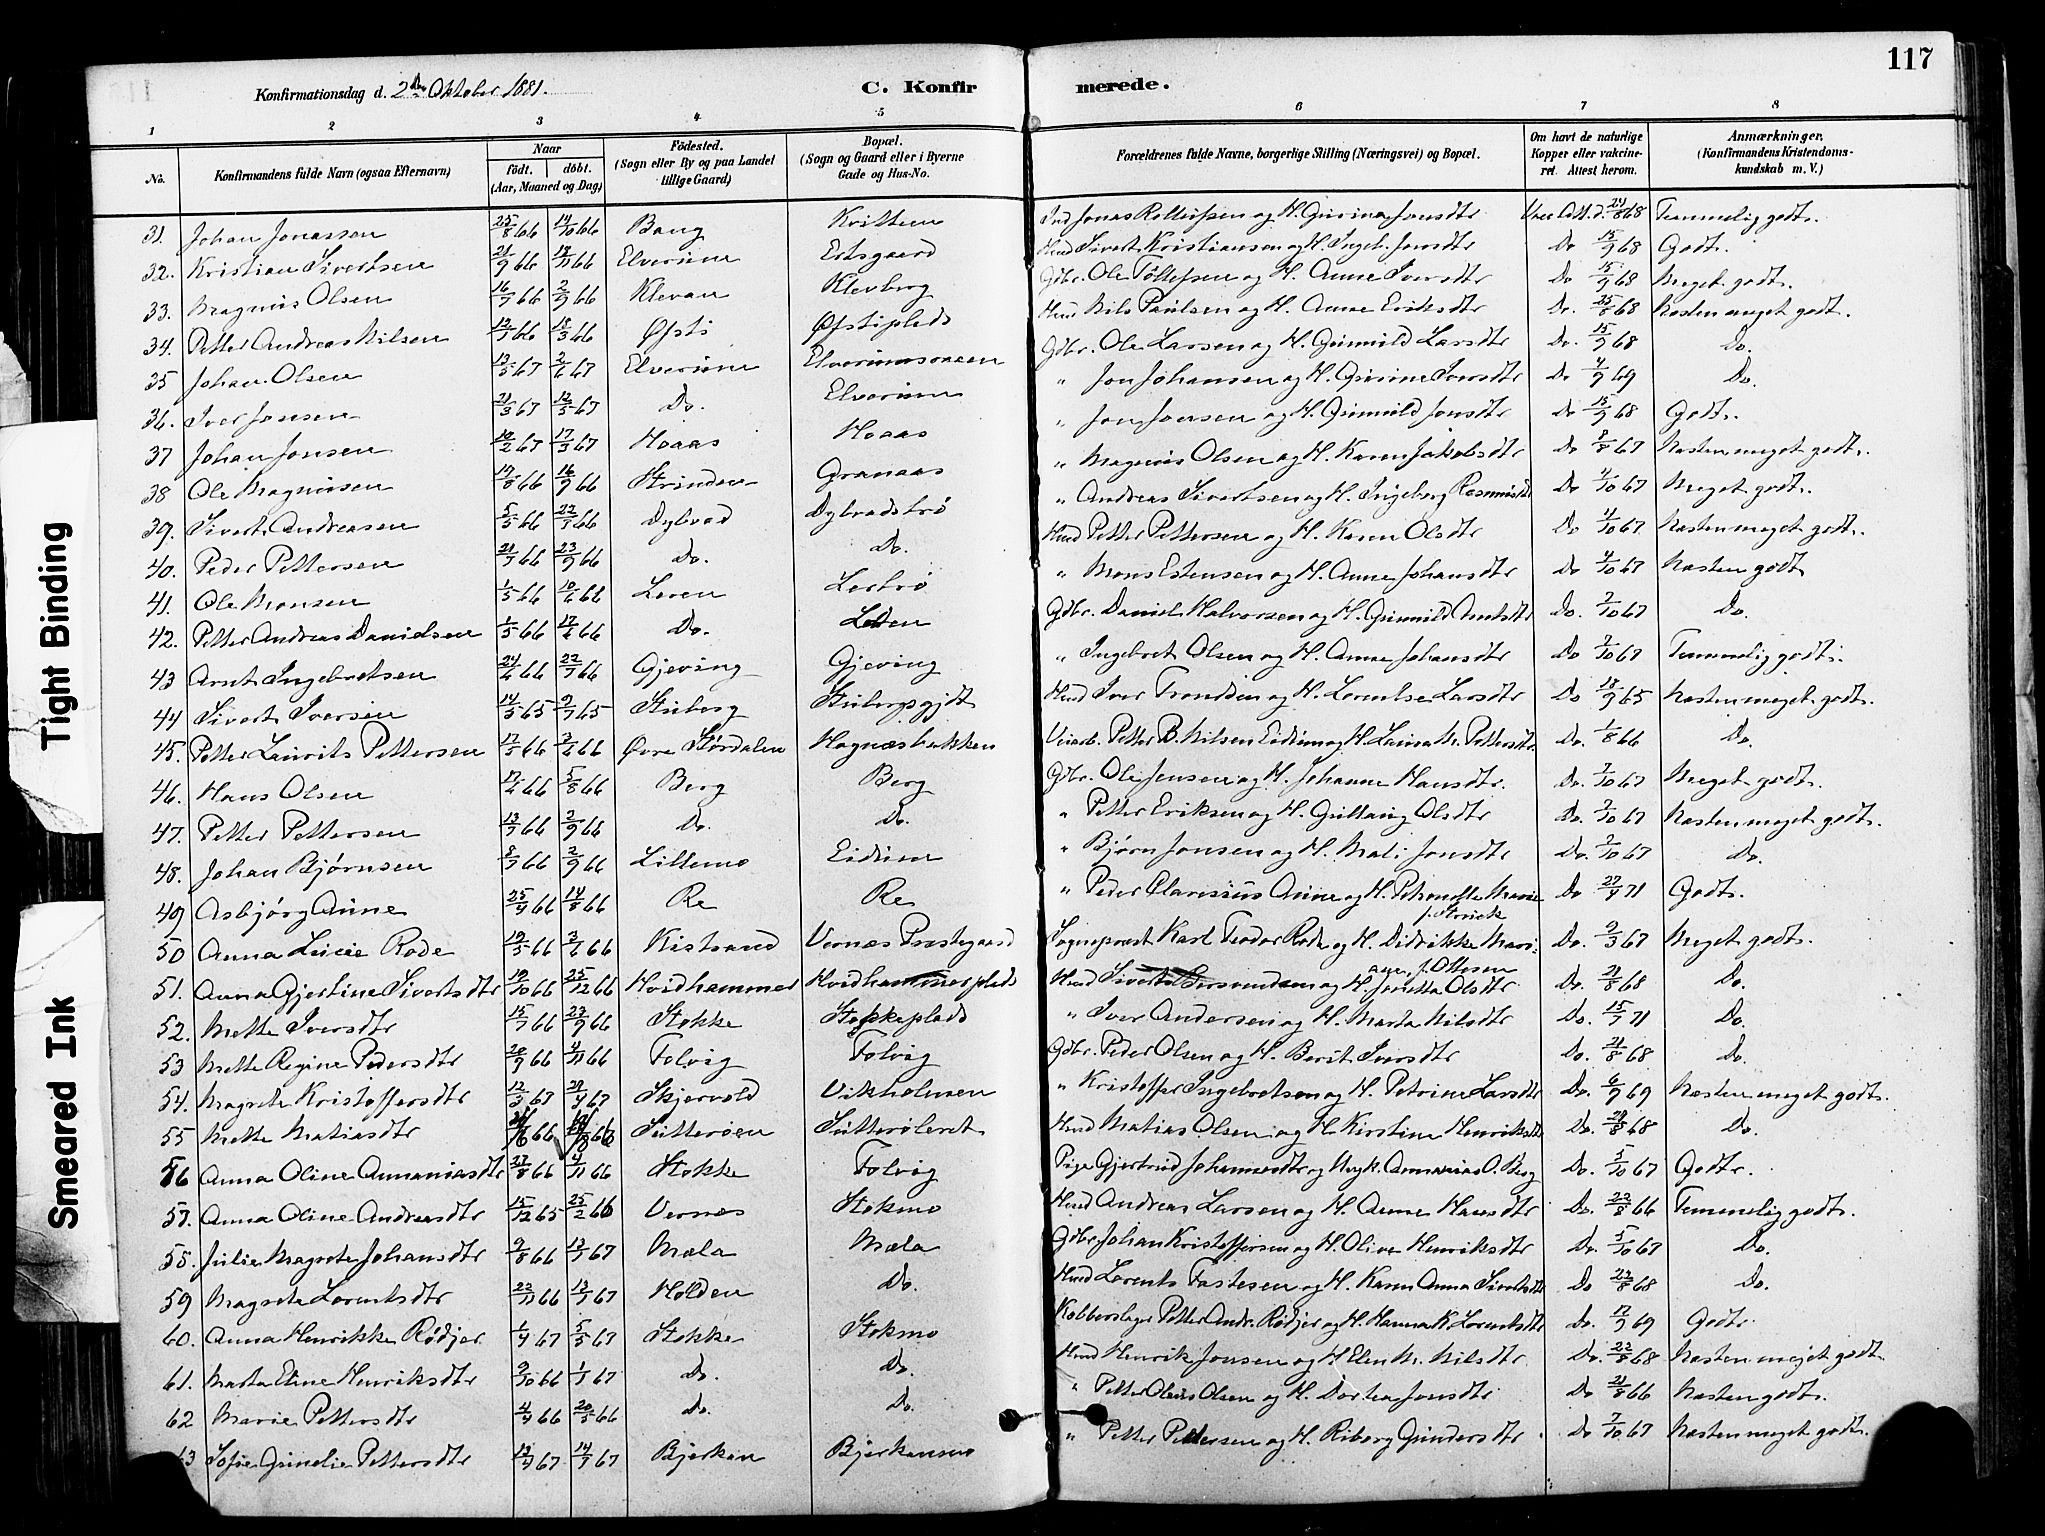 117
Konfirmationsdag d. 2den Oktober 1881.
C. Konfirmerede.
1 2 3 4 5 6 7 8
No. Konfirmandens fulde Navn (ogsaa Efternavn) Naar født. døbt. (Aar, Maaned og Dag) Födested. (Sogn eller By og paa Landet tillige Gaard) Bopæl. (Sogn og Gaard eller i Byerne Gade og Hus-No. Forældrenes fulde Navne, borgerlige Stilling (Næringsvei) og Bopæl. Om havt de naturlige Kopper eller vakcineret. Attest herom. Anmærkninger. (Konfirmandens Kristendomskundskab m. V.)
31. Johan Jonassen 25/8 66 14/10 66 Bang Jonas og H. Gurina Jonsdtr 68 Temmelig godt.
32. Kristian Sivertsen 21/9 66 18/11 66 Elverum Ertsgaard Hmd Sivert Kristiansen og H. Ingeb. Jonsdtr Do 15/9 68 Godt.
33. Magnus Olsen 16/7 66 2/9 66 Klevan Klevberg Gdbr. Ole Tøllefsen og H. Anne Iversdtr Do 15/9 68 Meget godt.
34. Petter Andreas Nilsen 66 18/3 66 Øfsti Øfstiplads Hmd Nils Paulsen og H. Anne Eriksdtr Do. 25/8 68 Næsten meget godt.
35 Johan Olsen 13/5 67 2/6 67 Elverum Gdbr. Ole Larsen og H. Gunnild Larsdtr Do. 15/9 68 Do.
36. Iver Jonsen 21/3 67 12/5 67 Do. Elverum " Jon Johansen og H. Gurine Iversdtr Do 4/9 69 Do.
37 Johan Jonsen 10/2 67 17/3 67 Hoaas Hoaas " Jon Jonsen og H. Gunnild Jonsdtr Do 15/9 68 Godt.
38 Ole Magnussen 19/8 66 16/9 66 Strinden Granaas " Magnus Olsen og H. Karen Jakobsdtr Do 67 Næsten meget godt.
39. Sivert Andreasen 5/5 66 22/7 66 Dybvad Dybvadsbrø " Andreas Sivertsen og H. Ingeborg Rasmusdtr Do 4/10 67 Meget godt.
40. Peder Pettersen 21/7 66 23/9 66 Do. Do. Hmd Petter Pettersen og H. Karen Olsdtr Do 4/10 67 Næsten meget godt.
41. Ole Monsen 1/5 66 10/6 66 Leren Lerbrø " Mons Estensen og H. Anne Johansdtr Do 4/10 67 Næsten godt
42. Petter Andreas Danielsen 1/5 66 17/6 66 Do. Gdbr. Daniel Halvorsen og H. Gunnild Arntsdtr Do. 7/10 67 Do.
43 Arnt Ingebretsen 24/6 66 22/7 66 Gjeving Gjeving " Ingebret Olsen og H. Anne Johansdtr Do 7/10 67 Temmelig godt.
44 Sivert Iversen 14/5 65 9/7 65 Stuberg Stubergsgjdt Hmd Iver Trondsen og H. Lorentse Larsdtr Do 18/9 65 Næsten meget godt.
45. Petter Laurits Pettersen 17/5 66 66 Øvre Størdalen Hognæsbakken Veiarb. Petter B. Nilsen Eidum og H. Lavina M. Pettersdtr Do. 1/8 66 Do.
46. Hans Olsen 17/6 66 5/8 66 Berg Berg Gdbr. Ole Jensen og H. Johanna Hansdtr. Do. 7/10 67 Meget godt.
47. Petter Pettersen 13/7 66 2/9 66 Do. Do. " Petter Eriksen og H. Gullaug Olsdtr Do. 7/10 67 Næsten meget godt.
48. Johan Bjørnsen 66 2/9 66 Lillemo Eidum " Bjørn Jonsen og H. Mali Jonsdtr Do. 7/10 67 Do.
49 Asbjørg Anne 25/4 66 14/8 66 Re Re " Peder Claresius Anne og H. Petronelle Marie f. Strick Do 27/4 71 Godt.
50 Anna Lucie Rode 19/3 66 3/6 66 Kistrand Vernæs Præstegaard Sognepræst Karl Teodor Rode og H. Didrikke Mariane, f. Ottesen Do. 9/3 67 Meget godt.
51. Anna Gjertine Sivertsdtr 19/10 66 25/12 66 Hvidhammer Hvidhammerplads Hmd Sivert og H. Jonetta Olsdtr Do. 21/8 68 Do.
52. Mette Iversdtr 15/7 66 23/9 66 Stokke Stokkeplads " Iver Andersen og H. Marta Nilsdtr Do. 15/7 71 Do.
53 Mette Regine Pedersdtr 20/9 66 4/11 66 Folvig Folvig Gdbr. Peder Olsen og H. Berit Iversdtr Do. 21/8 68 Do.
54. Magrete Kristoffersdtr 12/3 67 67 Skjervold Vikholmen " Kristoffer Ingebretsen og H. Petrine Larsdtr Do. 6/9 69 Næsten meget godt.
55 Mette Matiasdtr 66 66 Sutterøen Sutterøleret Hmd Matias Olsen og H. Kirstine Henriksdtr Do. 68 Do.
56 Anna Oline Annaniasdtr 27/8 66 4/11 66 Stokke Folvig Pige Gjertrud Johannesdtr og Ungk. Annanias O. Berg Do. 5/10 67 Godt.
57. Anna Oline Andreasdtr 15/12 65 25/2 66 Vernæs Stokmo Hmd Andreas Larsen og H. Anne Hansdtr Do. 22/8 66 Temmelig godt.
58. Julie Magrete Johansdtr 9/8 66 13/1 67 Mæla Mæla Gdbr. Johan Kristoffersen og H. Oline Henriksdtr Do. 5/10 67 Do.
59 Magrete Lorentsdtr 22/11 66 13/1 67 Holden Do. Hmd Lorents Fastesen og H. Karen Anna Sivertsdtr Do 22/8 68 Do.
60. Anna Henrikke Rødjer 1/4 67 5/5 67 Stokke Stokmo Kobberslager Petter Andr. Rødjer og H. Hanna K. Lorentsdtr Do. 17/9 69 Godt
61. Marta Eline Henriksdtr 9/10 66 1/1 67 Do. Do. Hmd Henrik Jonsen og H. Elen M. Nilsdtr Do. 22/8 68 Næsten meget godt
62 Marie Pettersdtr 4/4 66 20/5 66 Do. Do. " Petter Olaus Olsen og H. Dortea Jonsdtr Do 21/8 66 Næsten godt.
63 Sofie Gunelie Pettersdtr 67 14/7 67 Bjerken Bjerkenmo " Petter Pettersen og H. Riborg Gundersdtr Do 7/10 67 Næsten meget godt.
Tight Binding
Smeared Ink